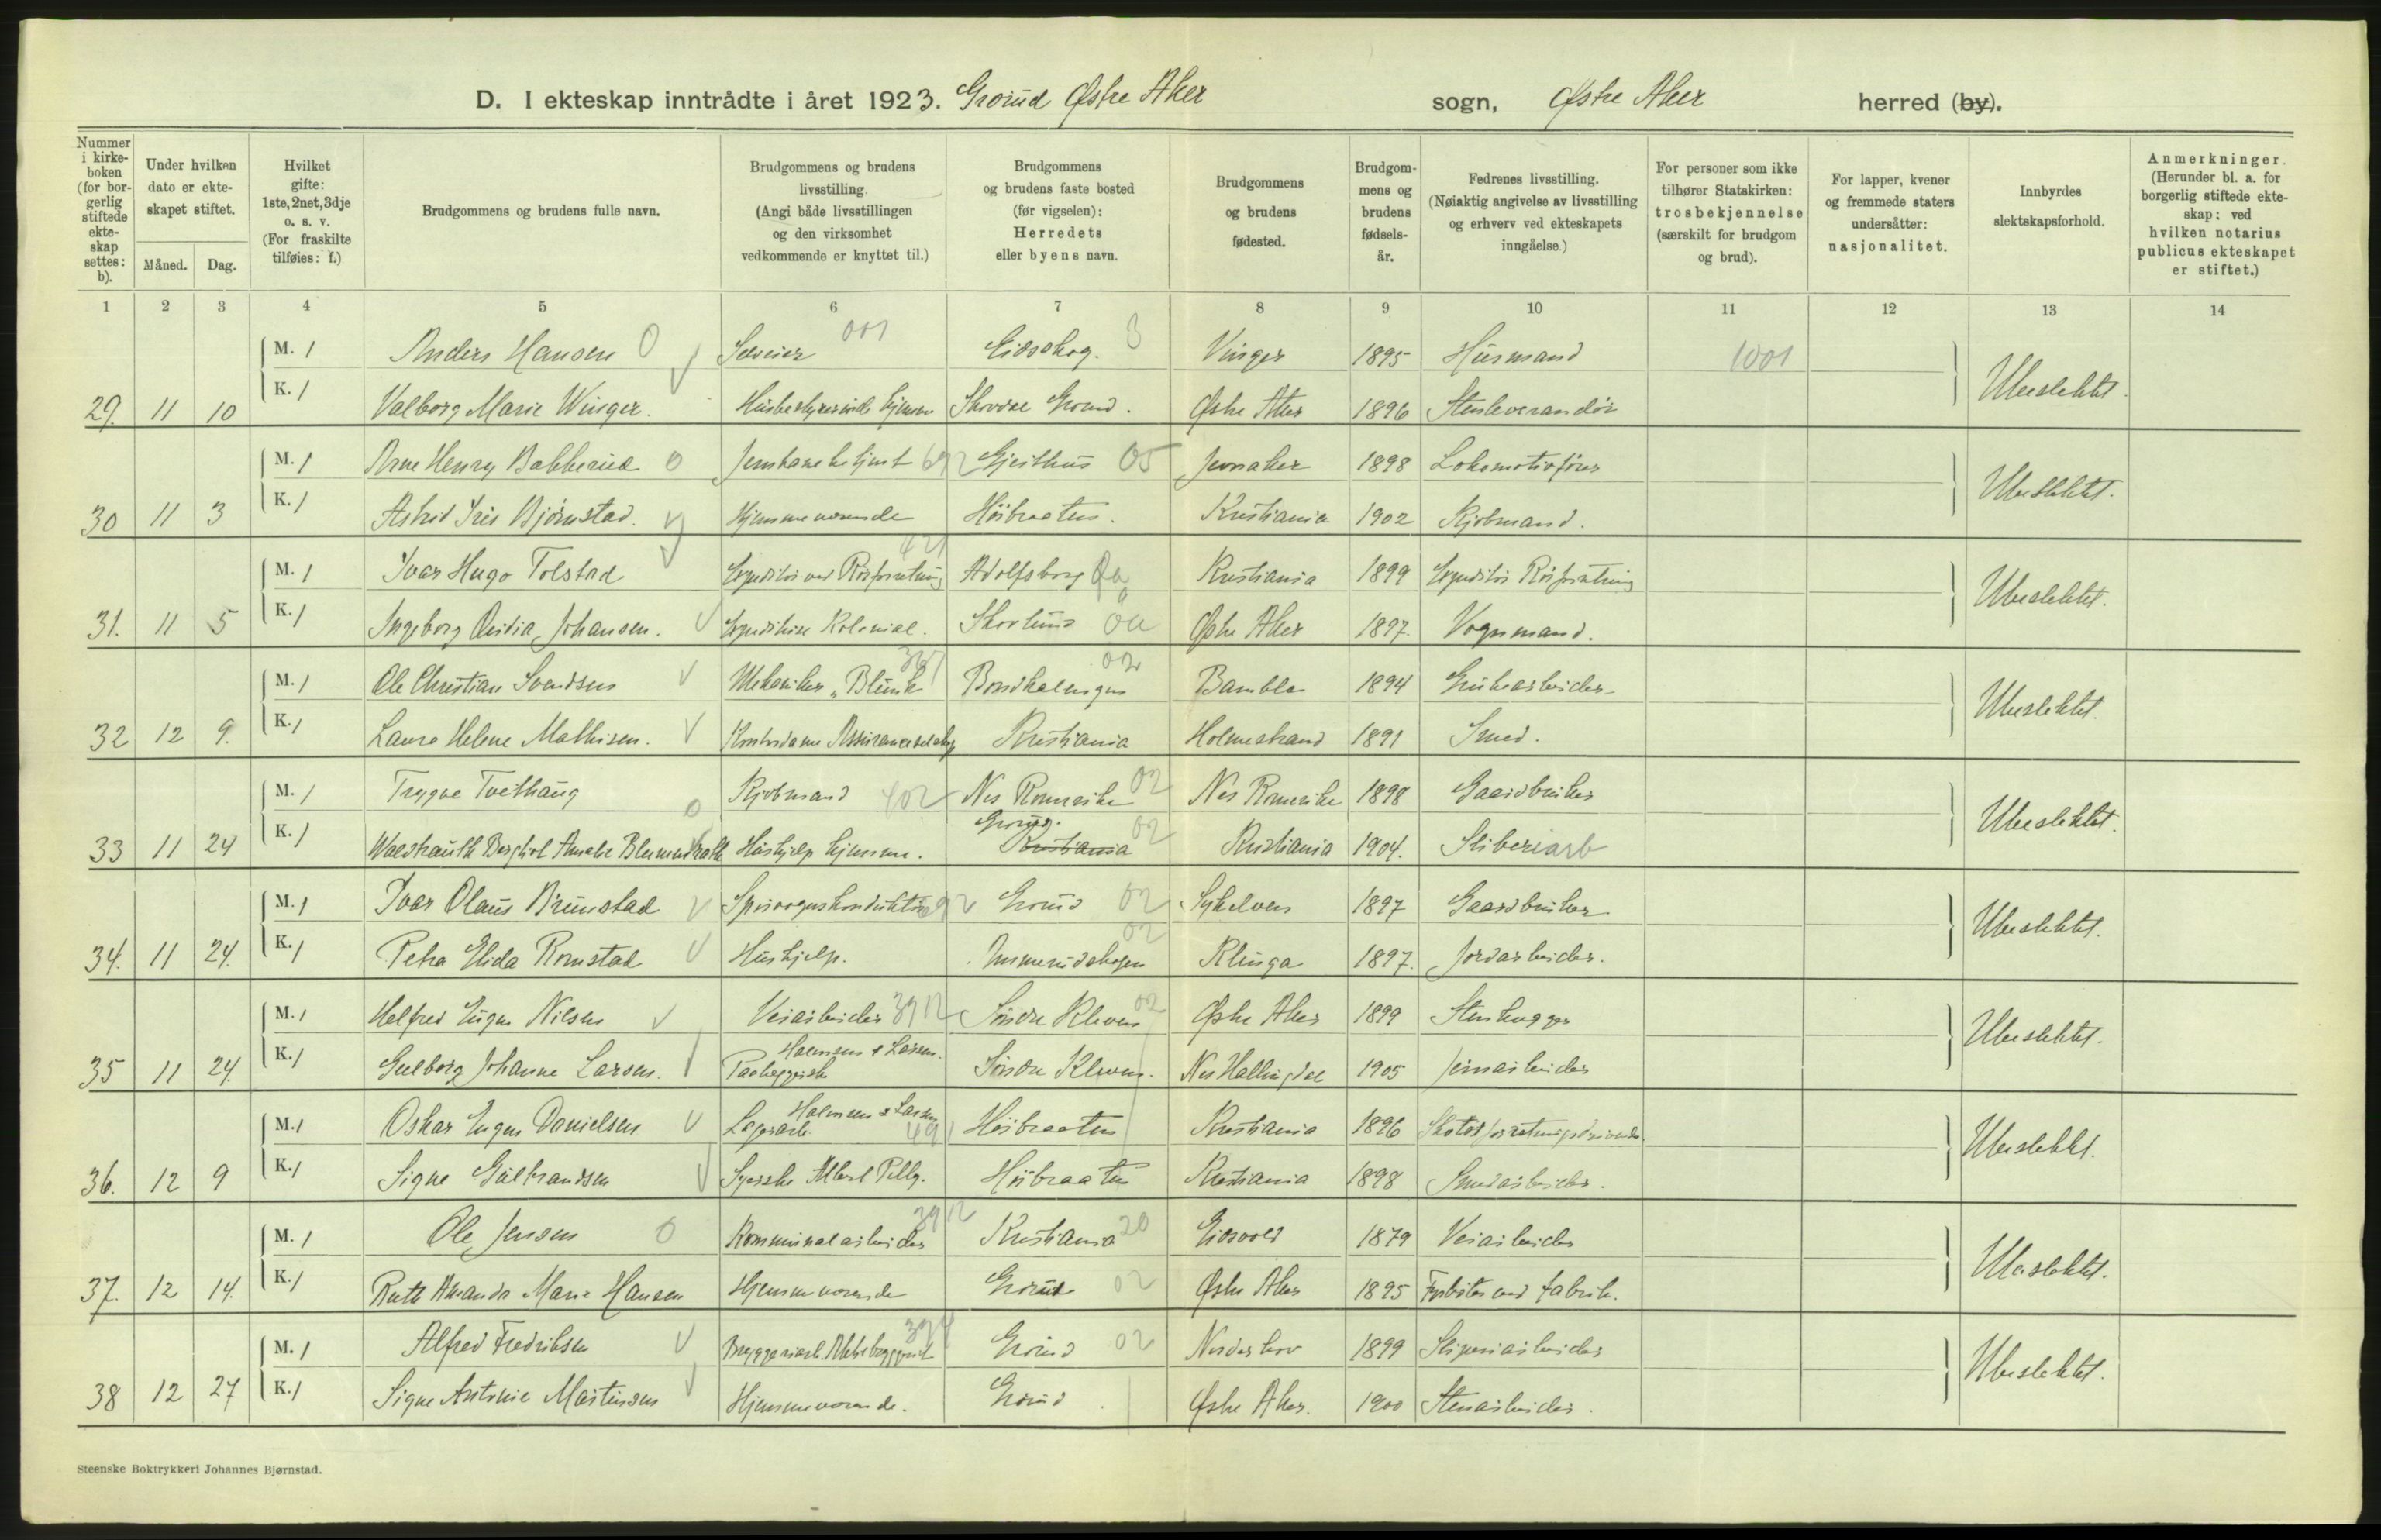 D. I ekteskap inntrådte i året 1923. Grorud Østre Aker sogn, Østre Aker herred (by).
Nummer i kirkeboken (for borgerlig stiftede ekteskap settes: b).
Under hvilken dato er ekteskapet stiftet.
Måned. Dag.
Hvilket gifte: 1ste, 2net, 3dje o. s. v. (For fraskilte tilføies: f.)
Brudgommens og brudens fulle navn.
Brudgommens og brudens livsstilling. (Angi både livsstillingen og den virksomhet vedkommende er knyttet til.)
Brudgommens og brudens faste bosted (før vigselen): Herredets eller byens navn.
Brudgommens og brudens fødested.
Brudgommens og brudens fødsels-år.
Fedrenes livsstilling. (Nøiaktig angivelse av livsstilling og erhverv ved ekteskapets inngåelse.)
For personer som ikke tilhører Statskirken: trosbekjennelse (særskilt for brudgom og brud).
For lapper, kvener og fremmede staters undersåtter: nasjonalitet.
Innbyrdes slektskapsforhold.
Anmerkninger. (Herunder bl. a. for borgerlig stiftede ekteskap: ved hvilken notarius publicus ekteskapet er stiftet.)
1 2 3 4 5 6 7 8 9 10 11 12 13 14
M. 1 Anders Hansen 0 Selveier 001 Eidsskog. 3 Vinger 1895 Husmand 1001
29. 11 10 K. 1 Valborg Marie Winger. Husbestyrerinde hjemme Grorud. Østre Aker 1896 Stenleverandør Ubeslektet.
M. 1 Arne Henry Bakkerud 0 692 Gjeithus 05 Jevnaker 1898 Lokomotivfører
30 11 3 K. 1 Astrid Iris Bjørnstad. Hjemmeværende Høibraaten. Kristiania 1902 Kjøbmand. Ubeslektet.
M. 1 Ivar Hugo Tolstad Expeditør ved Rørforretning 421 Adolfsborg Kristiania 1899 Expeditør Rørforretning
31. 11 5 K. 1 Ingeborg Ovidia Johansen. Expeditrise Kolonial. Skovlund Østre Aker 1897. Vognmand. Ubeslektet.
M. 1 Ole Christian Svendsen Mekaniker "Blunk" 02 Bamble 1894 Grubearbeider
32 12 9. K. 1 Laura Helene Mathisen. Kontordame Assuranceselskap Kristiania Holmestrand 1891 Smed. Ubeslektet.
M. 1 Trygve Tvethaug Kjøbmand 402 Nes Romerike 02 Nes Romerike 1898 Gaardbruker
33 11 24 K. 1 0 Hushjelp hjemme. Grorud. Kristiania 02 Kristiania 1904. Sliberiarb Ubeslektet.
M. 1 Ivar Olaus Brunstad Sporvognskonduktør 692 Grorud 02 Sykelven 1897 Gaardbruker
34. 11 24. K. 1 Petra Elida Romstad Hushjelp. Ammerudskogen 02 Klinga 1897. Jordarbeider. Ubeslektet.
M. 1 Helfred Eugen Nilsen Veiarbeider 3912 Søndre Kleven 02 Østre Aker 1899 Stenhugger
35 11 24. K. 1 Gulborg Johanne Larsen. Halvorsen & Larsen. Pakkerske Søndre Kleven. Nes Hallingdal 1905 Jernarbeider Ubeslektet.
M. 1 Oskar Eugen Danielsen Halvorsen & Larsen Lagerarb. 491 Høibraaten Kristiania 1896
36. 12 9 K. 1 Signe Gulbrandsen Syerske Høibraaten Kristiania 1898 Smedarbeider. Ubeslektet.
M. 1 Ole Jensen 0 Kommunalarbeider 3912 Kristiania 20 Eidsvold 1879 Veiarbeider
37. 12 14. K. 1 Ruth Amanda Marie Hansen Hjemmeværende Grorud 02 Østre Aker 1895 Fyrbøter ved fabrik. Ubeslektet.
M. 1 Alfred Fredriksen Bryggeriarb. 394 Grorud 02 Norderhov 1899 Sliperiarbeider
38 12 27 K. 1 Signe Antonie Martinsen Hjemmeværende. Grorud Østre Aker. 1900 Stenarbeider. Ubeslektet.
Steenske Boktrykkeri Johannes Bjørnstad.